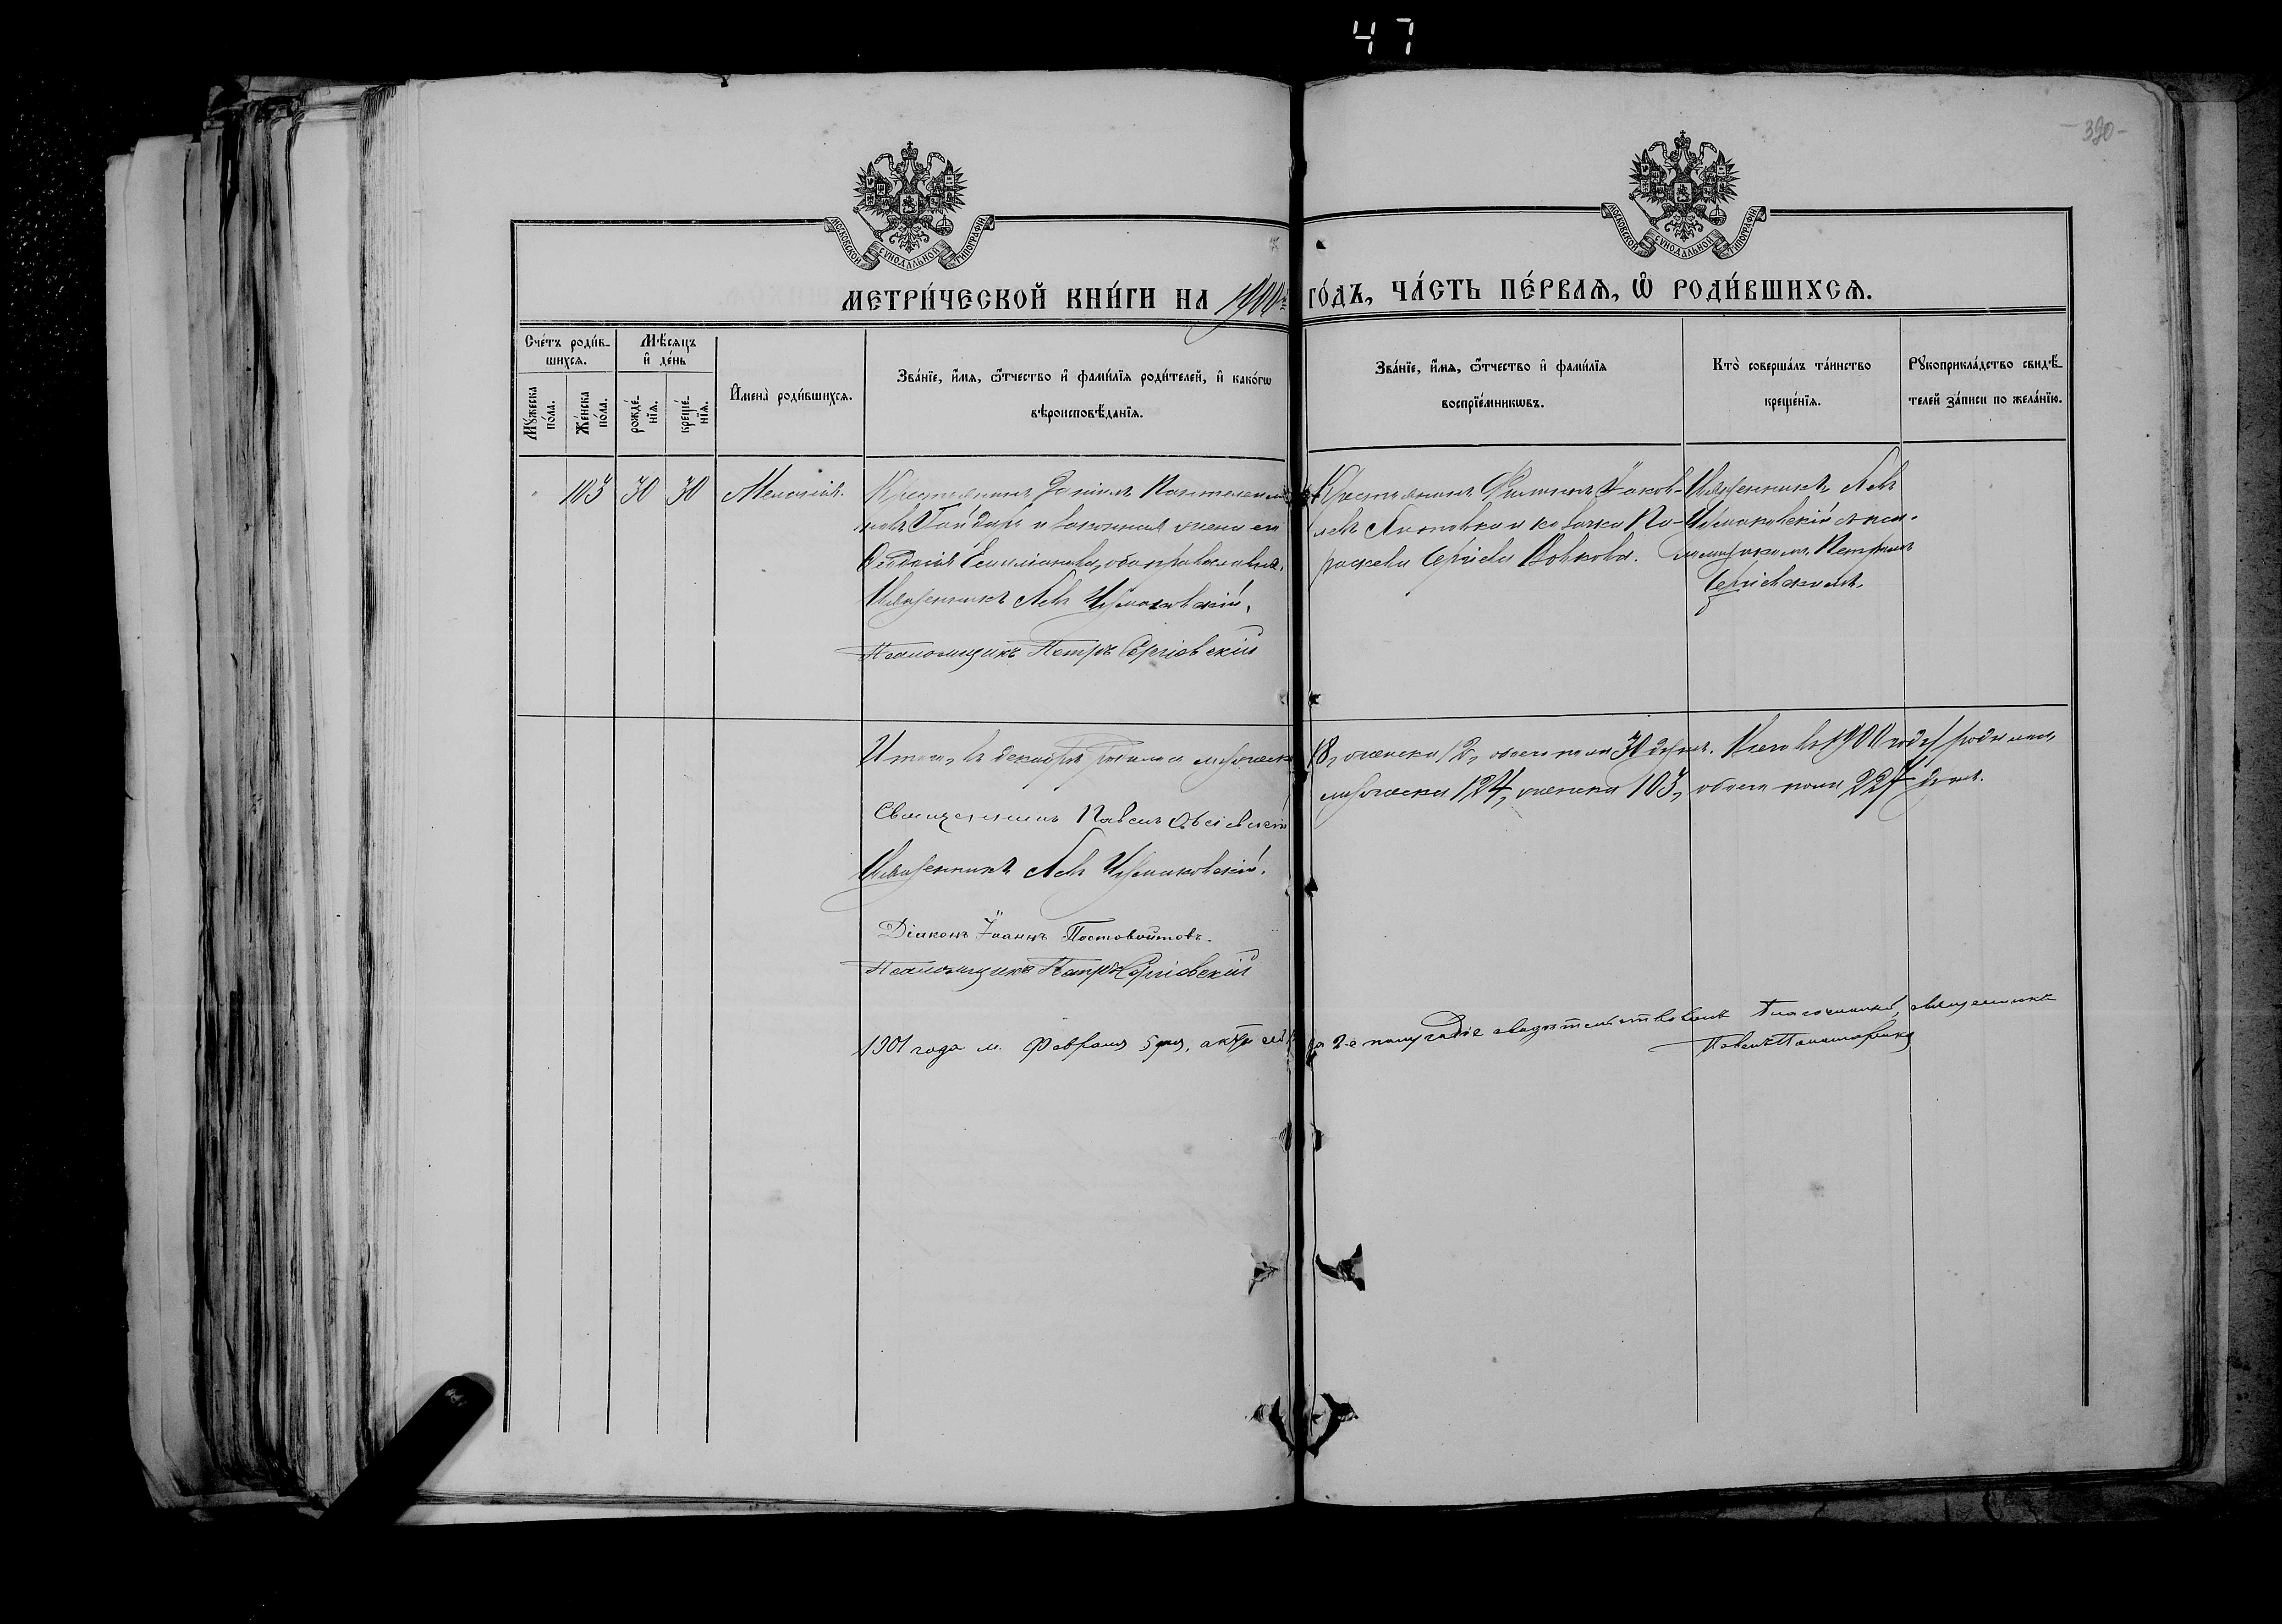 47
390
МОСКОВСКОЙ СѴНОДАЛЬНОЙ ТИПОГРАФІИ
МОСКОВСКОЙ СѴНОДАЛЬНОЙ ТИПОГРАФІИ
МЕТРИ́ЧЕСКОЙ КНИ́ГИ НА 1900й ГО́ДЪ, ЧА́СТЬ ПЕ́РВАѦ, Ѡ҆ РОДИ́ВШИХСѦ.
Сче́тъ роди́в-
шихсѧ.
Мꙋ́жеска
по́ла.
Же́нска
по́ла.
Мѣ́сѧцъ
и҆ де́нь
рожде́-
нїѧ.
креще́-
нїѧ.
И҆мена̀ роди́вшихсѧ.
Зва́нїе, и҆́мѧ, ѻ҆́тчество и҆ фами́лїѧ роди́телей, и҆ како́гѡ
вѣроисповѣ́данїѧ.
Зва́нїе, и҆́мѧ, ѻ҆́тчество и҆ фами́лїѧ
воспрїе́мникѡвъ.
Кто̀ соверша́лъ та́инство
креще́нїѧ.
Рꙋкоприкла́дство свидѣ́-
телей за́писи по жела́нїю.
" 103 30 30 Меланія.
Крестьянинъ Даніилъ Пантелеимо-
новъ Гайдаръ и законная жена его
Евдокія Емиліанова, оба православные.
Священникъ Левъ Чермаковскій.
Псаломщикъ Петръ Сергіевскій
Крестьянинъ Филиппъ Іаков-
левъ и козачка Па-
раскева Сергіева Вовкова.
Священникъ Левъ
Чермаковскій съ пса-
ломщикомъ Петромъ
Сергіевскимъ.
Итого, въ декабрѣ родилось мужеска 18, женска 12, обоего пола 30 душъ. Всего въ 1900 году родилось
мужеска 124, женска 103, обоего пола 227 душъ.
Священникъ Павелъ
Священникъ Левъ Чермаковскій.
Діаконъ Іоаннъ Постовойтовъ.
Псаломщикъ Петръ Сергіевскій
1901 года м. Февраля 5 дня, за 2-е полугодіе свидѣтельствовалъ Благочинный, священникъ
Павелъ Пономаренко